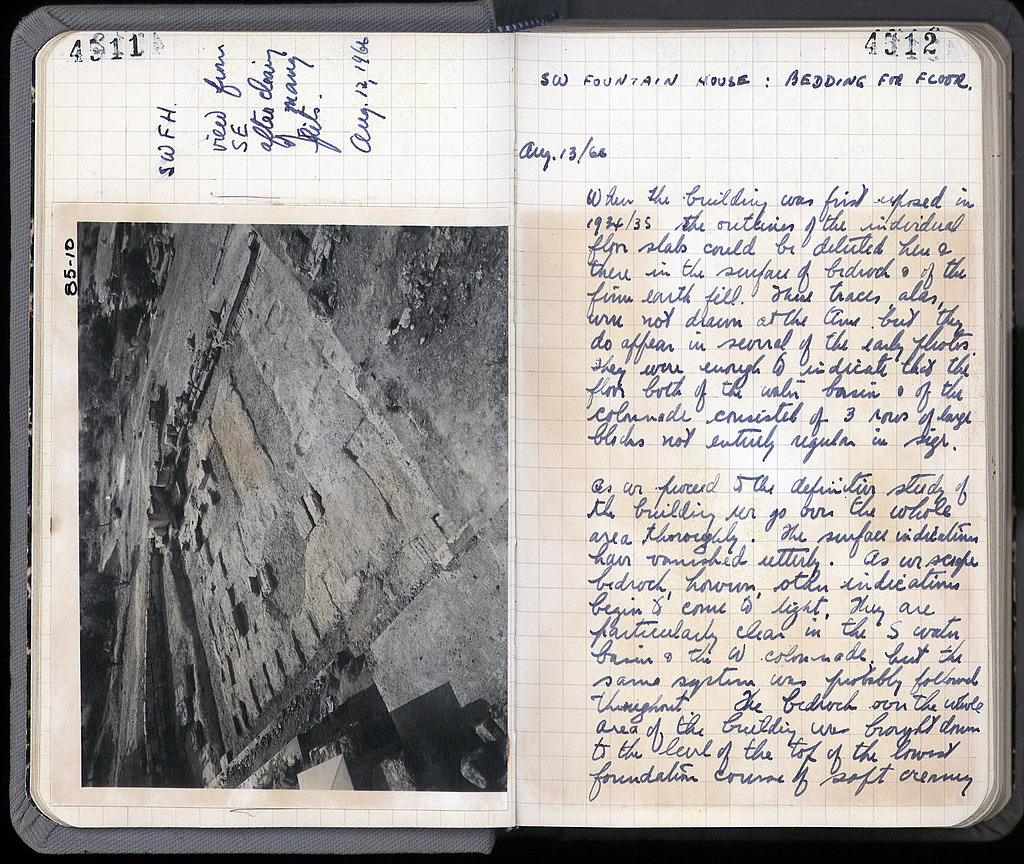 4311
SWFH.
view from
SE
after clearing
of many
pits.
Aug. 12, 1966
85-10
4312
SW FOUNTAIN HOUSE : BEDDING FOR FLOOR.
Aug. 13/66
When the building was first exposed in
1934/35 the outlines of the individual
floor slabs could be detected here &
there in the surface of bedrock & of the
firm earth fill. These traces, alas,
were not drawn at the time but they
do appear in several of the early photos.
They were enough to indicate that the
floor both of the water basin & of the
colonnade consisted of 3 rows of large
blocks not entirely regular in size.
As we proceed to the definitive study of
the building we go over the whole
area thoroughly. The surface indications
have vanished utterly. As we scrape
bedrock, however, other indications
begin to come to light. They are
particularly clear in the S water
basin & the W colonnade, but the
same system was probably followed
throughout. The bedrock over the whole
area of the building was brought down
to the level of the top of the lowest
foundation course of soft creamy